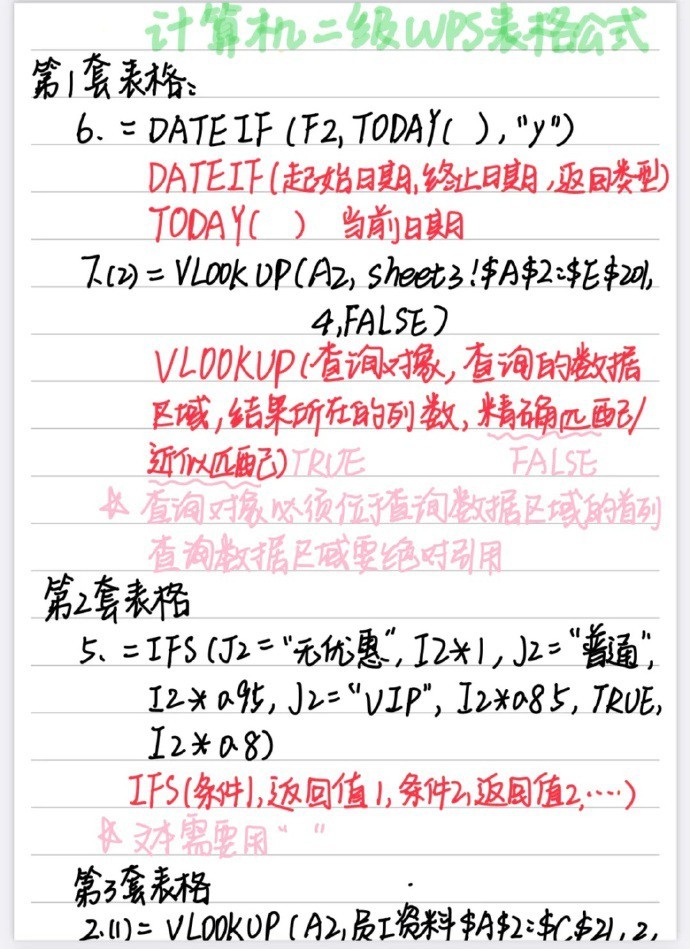 计算机二级WPS表格公式
第1套表格:
6. = DATEIF (F2, TODAY( ), "y")
DATEIF(起始日期,终止日期,返回类型)
TODAY( ) 当前日期
7.(2) = VLOOKUP(A2, sheet3!$A$2:$E$201,
4,FALSE)
VLOOKUP(查询对象, 查询的数据
区域,结果所在的列数, 精确匹配/
近似匹配)TRUE FALSE
☆ 查询对象必须位于查询数据区域的首列
查询数据区域要绝对引用
第2套表格
5. =IFS(J2="无优惠", I2*1, J2="普通",
I2*0.95, J2="VIP", I2*0.85, TRUE,
I2*0.8)
IFS(条件1,返回值1,条件2,返回值2,……)
☆ 文本需要用" "
第3套表格
2.(1)= VLOOKUP(A2,员工资料$A$2:$C$21,2,